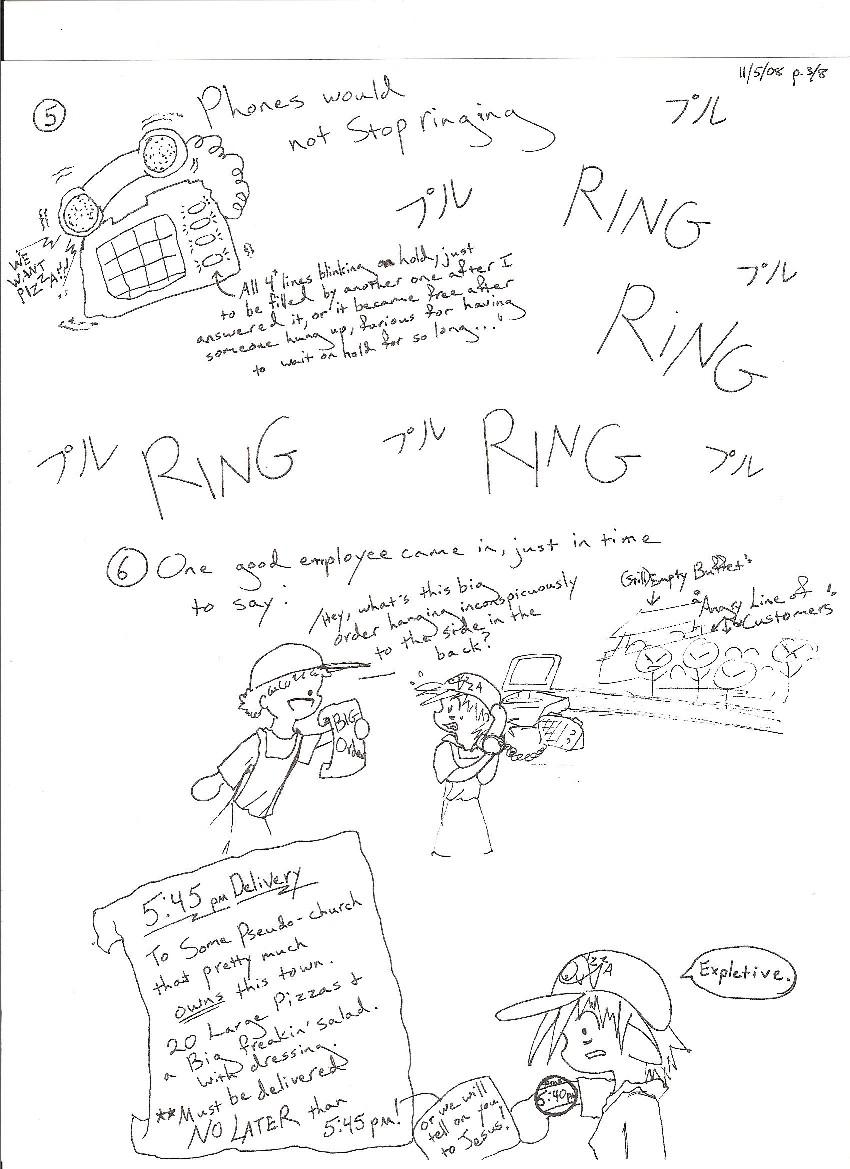 11/5/08 p.3/8
5
Phones would
not Stop ringing
プル
プル
RING
WE
WANT
PIZZA!!!
プル
All 4 lines blinking on hold, just
to be filled by another one after I
answered it, or it became free after
someone hung up, furious for having
to wait on hold for so long...
RiNG
プル
RING
プル
RING
プル
6 One good employee came in, just in time
to say:
Hey, what's this big
order hanging inconspicuously
to the side in the
back?
Still Empty Buffet
Angry Line of
Customers
BIG
Order
ZZA
5:45 pm Delivery
To Some Pseudo-church
that pretty much
owns this town.
20 Large Pizzas &
a Big freakin' salad.
with dressing.
**Must be delivered
NO LATER than
5:45 pm!
or we will
tell on you
to Jesus!
5:40pm
Expletive.